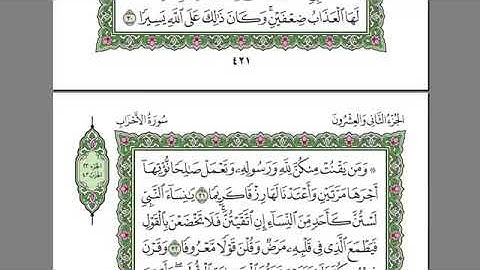 لَهَا الْعَذَابُ ضِعْفَيْنِ ۚ وَكَانَ ذَٰلِكَ عَلَى اللَّهِ يَسِيرًا ٣٠
٤٢١
الجُزْءُ الثَّانِي وَالعِشْرُونَ
سُورَةُ الأَحْزَابِ
۞ وَمَن يَقْنُتْ مِنكُنَّ لِلَّهِ وَرَسُولِهِ وَتَعْمَلْ صَالِحًا نُّؤْتِهَا
أَجْرَهَا مَرَّتَيْنِ وَأَعْتَدْنَا لَهَا رِزْقًا كَرِيمًا ٣١ يَا نِسَاءَ النَّبِيِّ
لَسْتُنَّ كَأَحَدٍ مِّنَ النِّسَاءِ إِنِ اتَّقَيْتُنَّ فَلَا تَخْضَعْنَ بِالْقَوْلِ
فَيَطْمَعَ الَّذِي فِي قَلْبِهِ مَرَضٌ وَقُلْنَ قَوْلًا مَّعْرُوفًا ٣٢ وَقَرْنَ